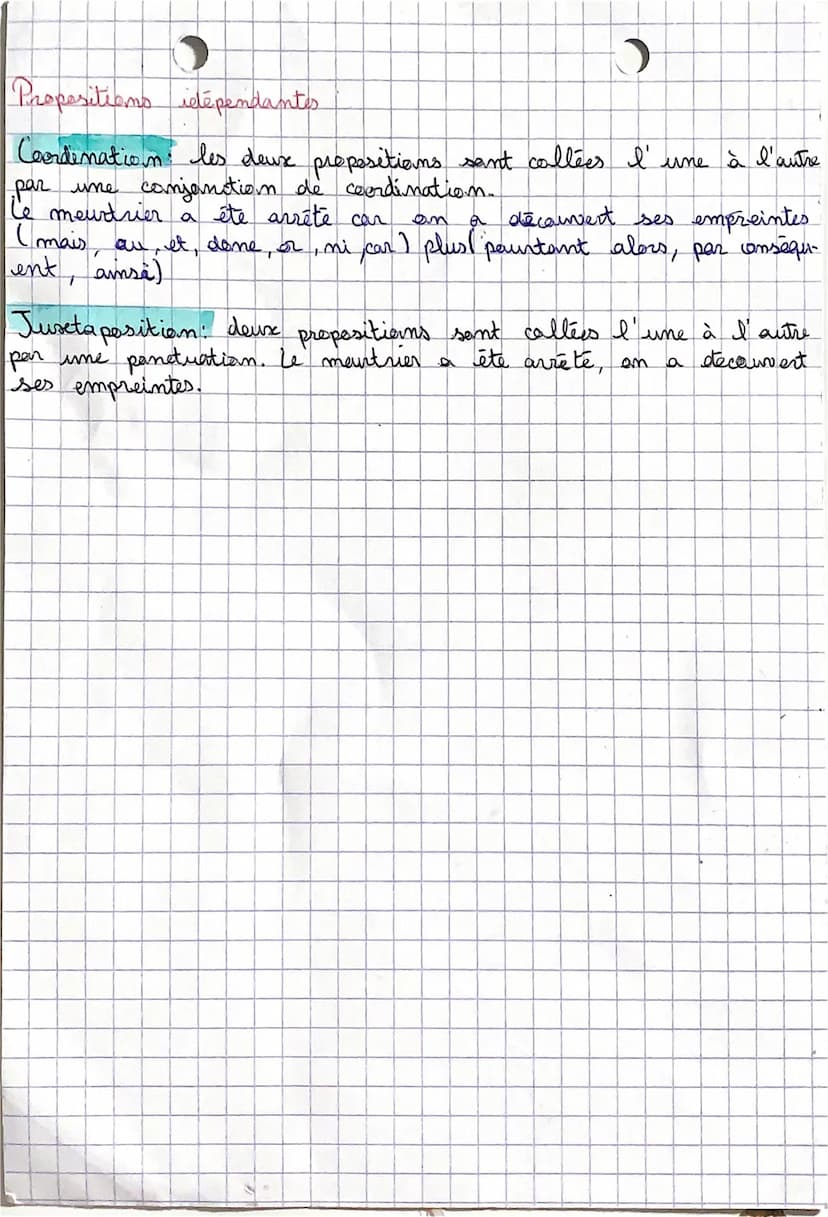 Propositions idépendantes
Coordination: les deux propositions sont collées l'une à l'autre
par une conjonction de coordination.
Le meurtrier a été arrêté car on a découvert ses empreintes
(mais, ou, et, donc, or, ni, car) plus (pourtant alors, par conséqu-
ent, ainsi)
Juxtaposition: deux propositions sont collées l'une à l'autre
par une ponctuation. Le meurtrier a été arrêté, on a decouvert
ses empreintes.